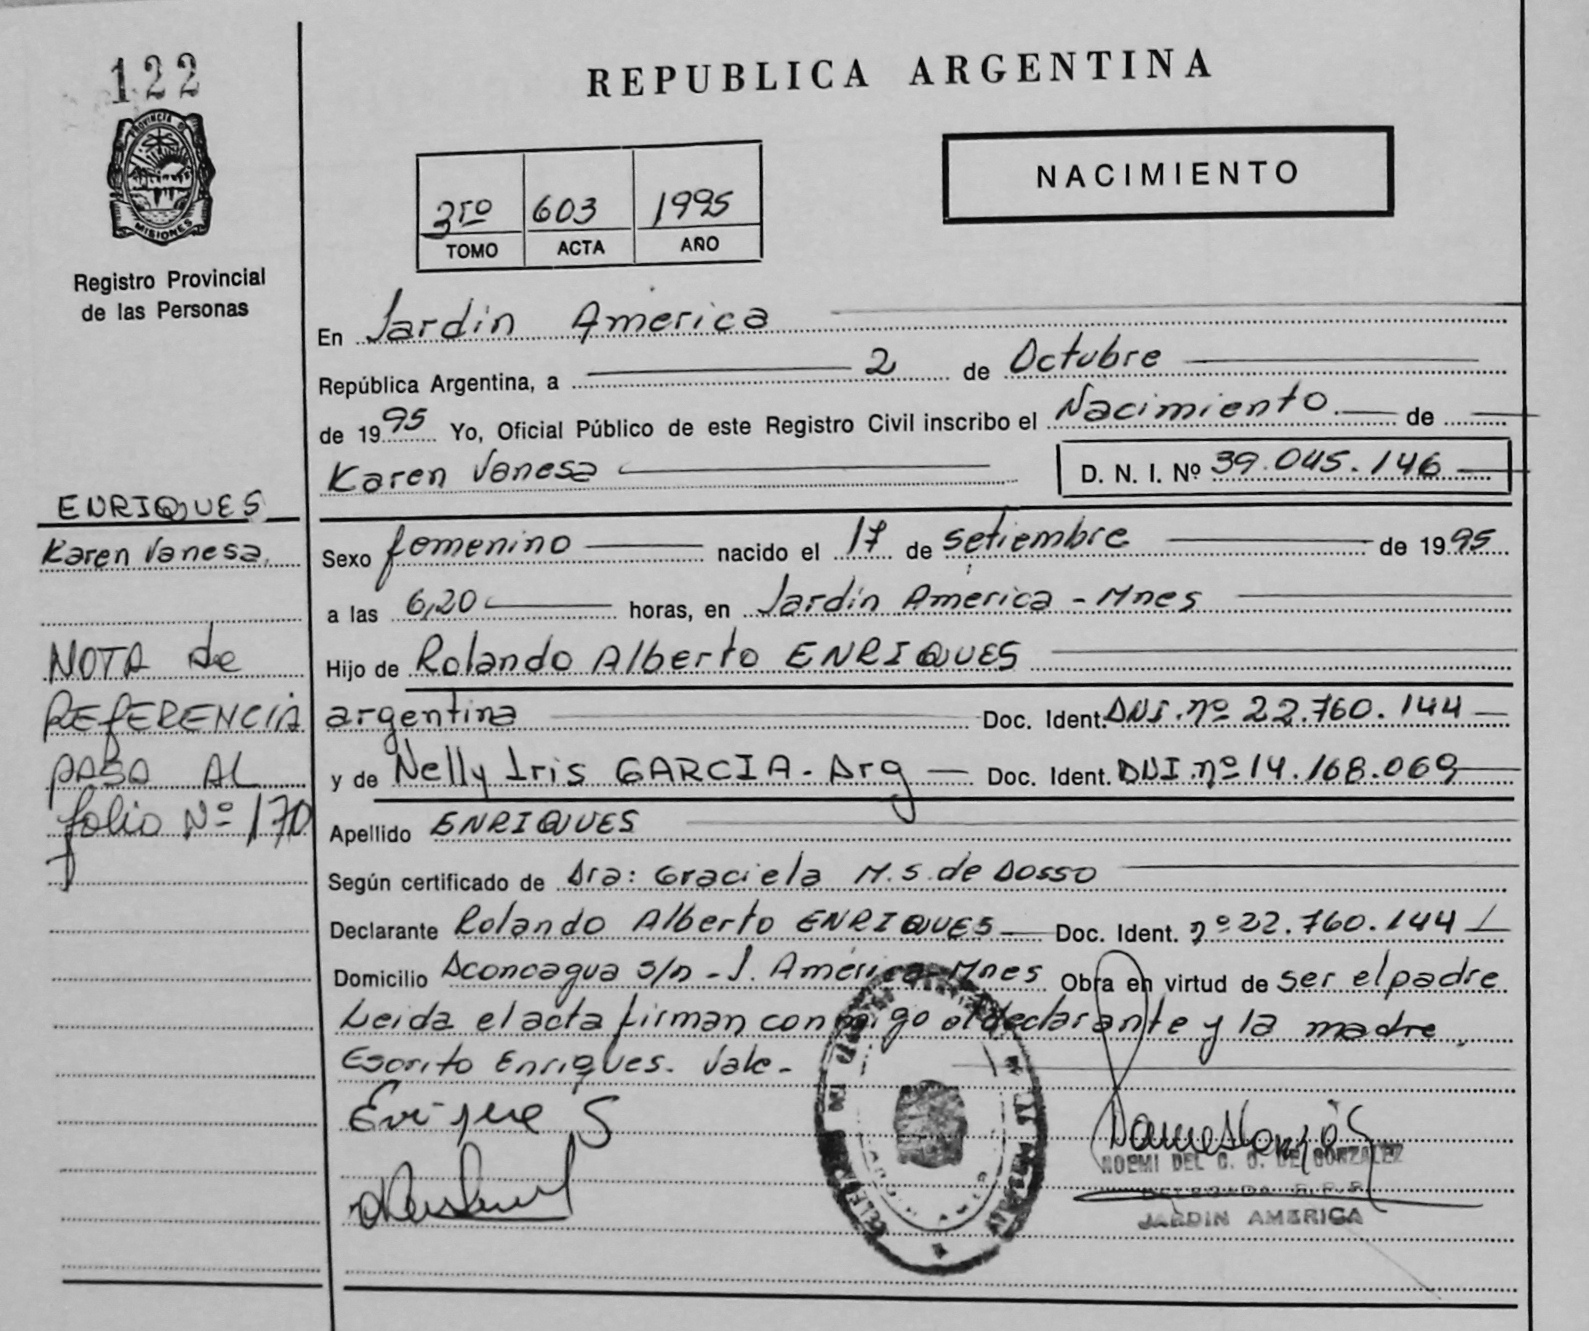 122
PROVINCIA DE
MISIONES
Registro Provincial
de las Personas
REPUBLICA ARGENTINA
NACIMIENTO
3ro 603 1995
TOMO ACTA AÑO
En Jardín América
República Argentina, a 2 de Octubre
de 1995 Yo, Oficial Público de este Registro Civil inscribo el Nacimiento de
Karen Vanesa D. N. I. Nº 39.045.146
ENRIQUES
Karen Vanesa.
NOTA de
REFERENCIA
PASA AL
folio Nº 170
Sexo femenino nacido el 17 de setiembre de 1995
a las 6,20 horas, en Jardín América - Mnes
Hijo de Rolando Alberto ENRIQUES
argentina Doc. Ident. DNI. nº 22.760.144
y de Nelly Iris GARCIA - Arg Doc. Ident. DNI. nº 14.168.069
Apellido ENRIQUES
Según certificado de Dra: Graciela M.S. de Dosso
Declarante Rolando Alberto ENRIQUES Doc. Ident. nº 22.760.144
Domicilio Aconcagua s/n - J. América - Mnes Obra en virtud de ser el padre
Leida el acta firman conmigo el declarante y la madre.
Escrito Enriques. Vale -
Enriques
NOEMI DEL C. O. DE GONZALEZ
DELEGADA R.P.P.
JARDIN AMERICA